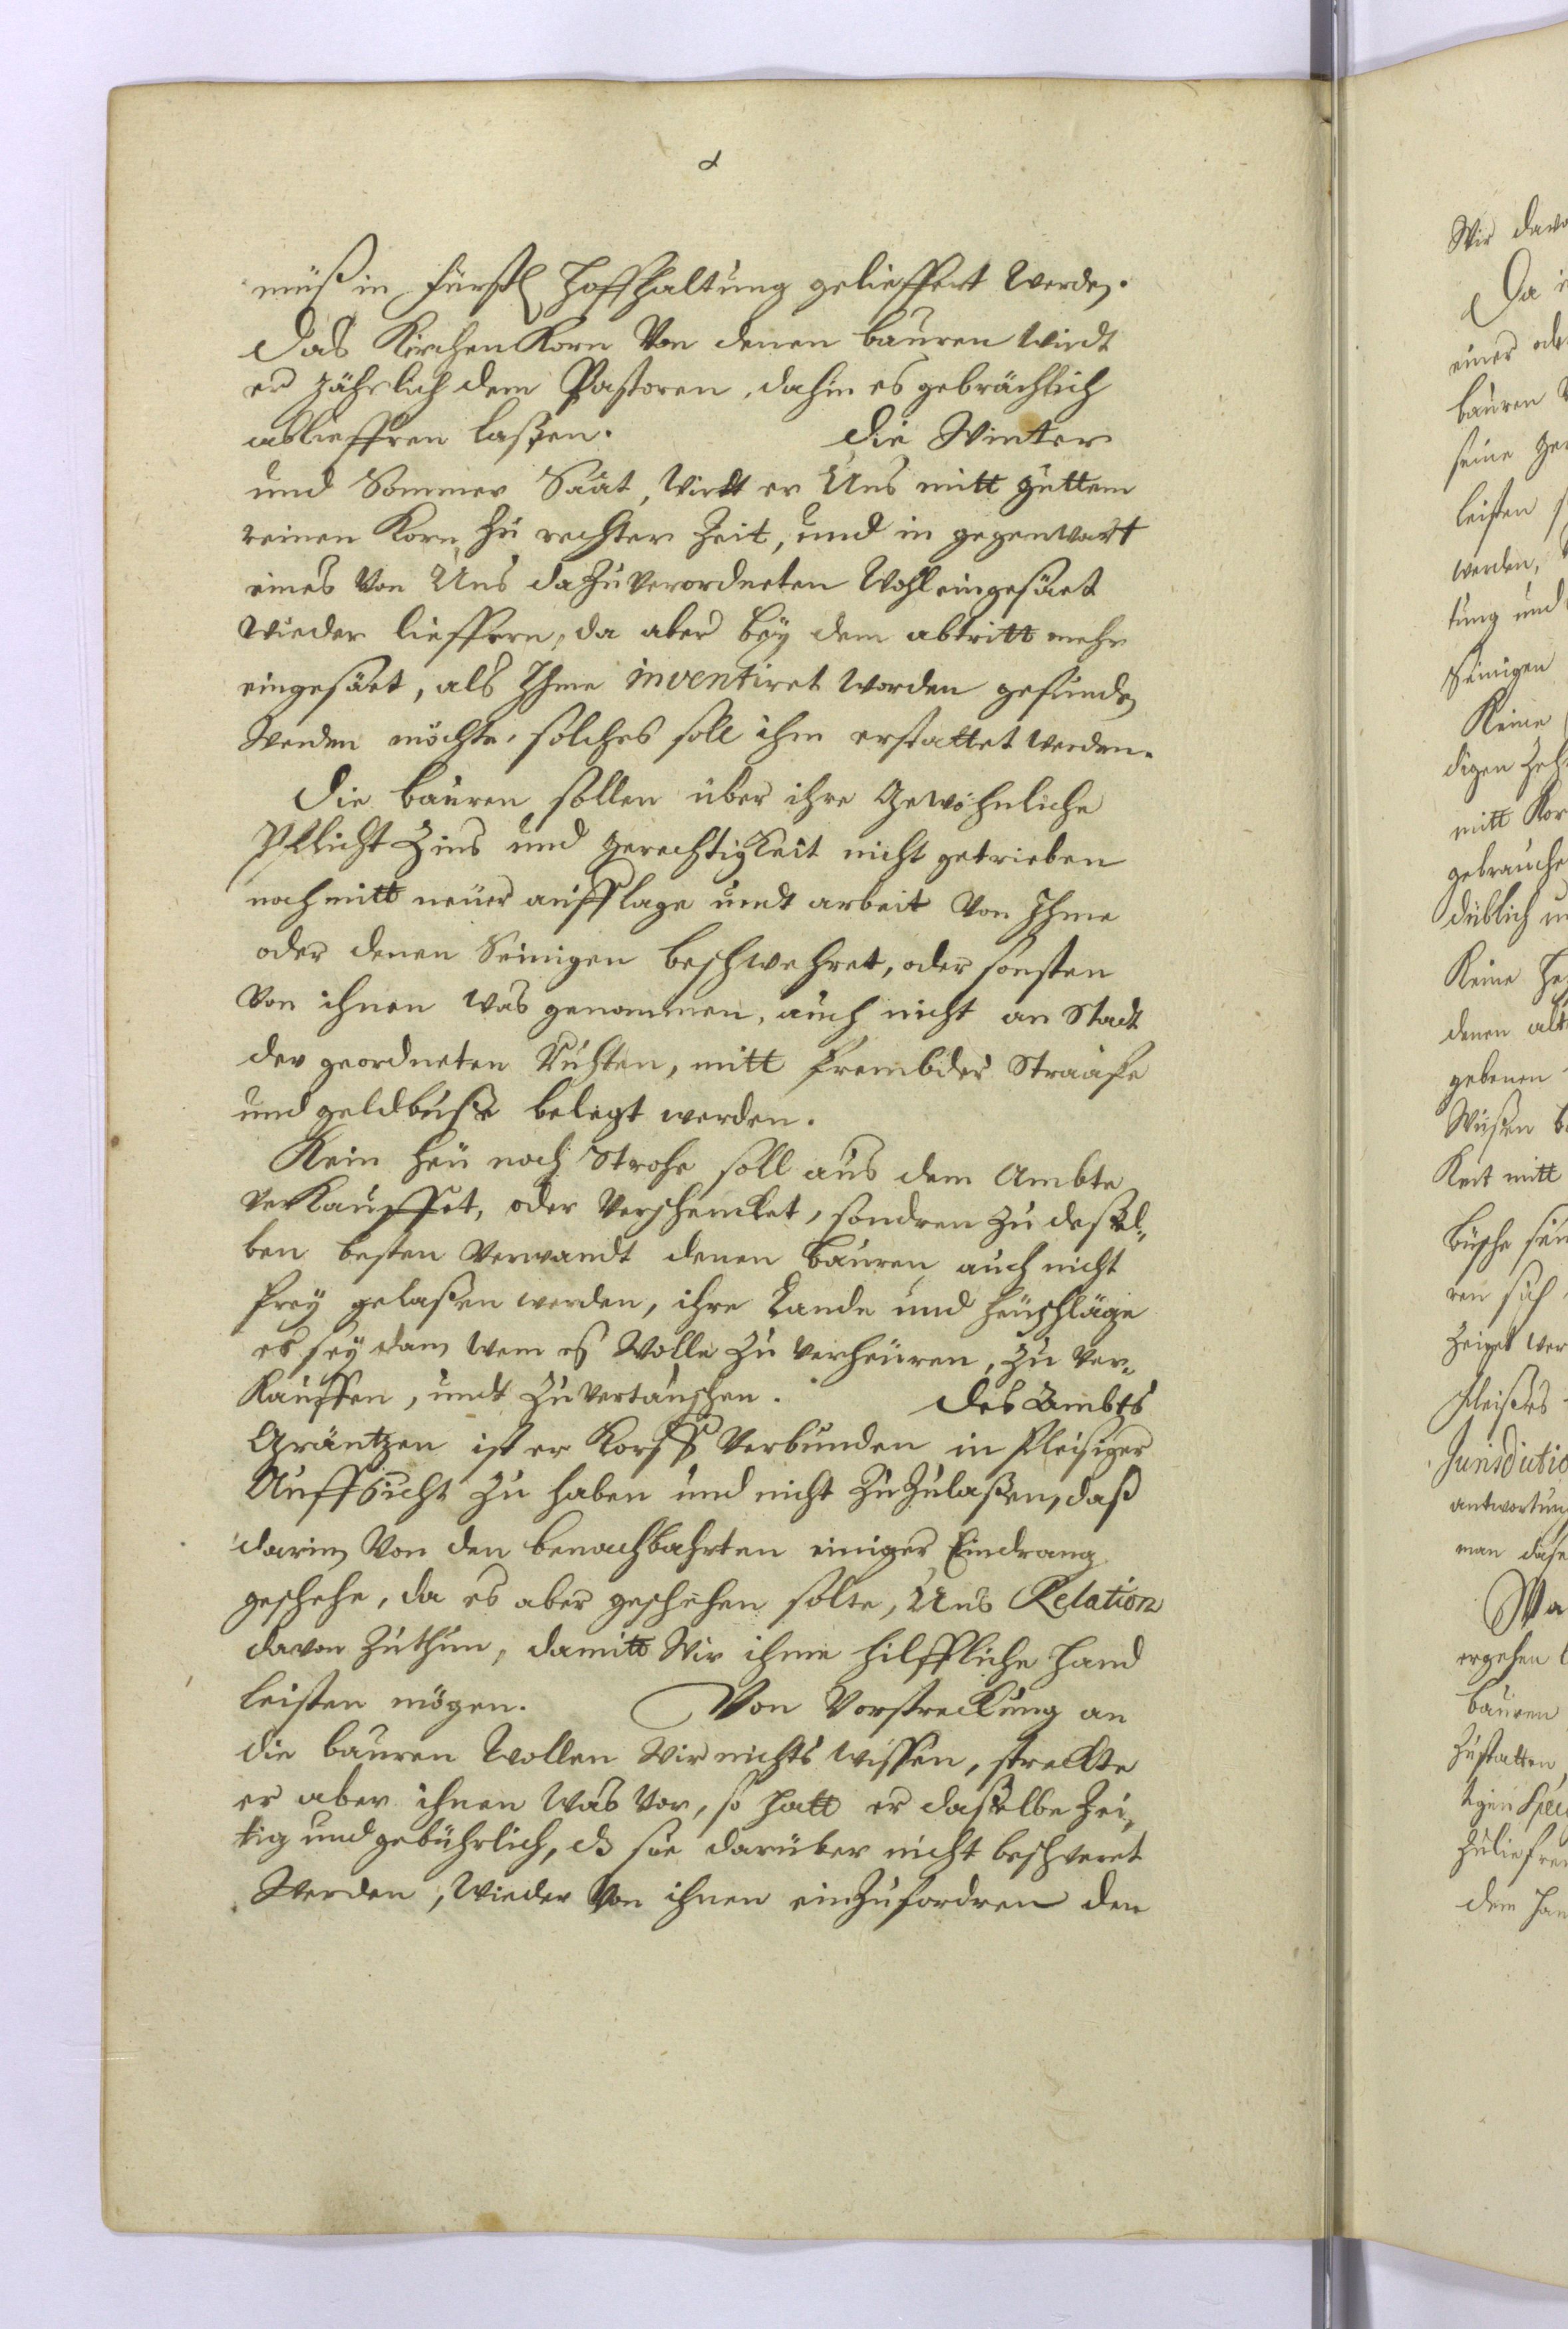 d
müß in fürstl Hoffhaltung gelieffert werden.
Das Kirchen Korn Von denen bauren Wirdt
er Jährlich dem Pastoren, dahin es gebrächlich
ablieffren laßen. Die Winter
und Sommer Saat, Wirdt er Uns mitt guttem
reinen Korn, zu rechter Zeit, und in gegenwart
eines Von Uns dazu verordneten Wohl eingesäet
Wieder lieffern, da aber bey dem abtritt mehr
eingesäet, als Ihme inventiret Worden gefunden
Werden möchte, solches soll ihm erstattet werden.
Die bauren sollen über ihre Gewöhnliche
Pflicht Zins und Gerechtigkeit nicht getrieben
noch mitt neuer aufflage undt arbeit Von Ihme
oder denen Seinigen beschwehret, oder sonsten
Von ihnen Was genommen, auch nicht an Stadt
der geordneten Ruhten, mitt frembder Straafe
und geldbuße belegt werden.
Kein Heu noch Strohe soll aus dem Ambte
Verkauffet, oder Verschencket, sondren zu deßel¬
ben besten Verwandt denen bauren auch nicht
frey gelaßen werden, ihre Lande und Heuschläge
es sey dan wem es Wolle zu verheuren, zu Ver¬
kauffen, undt zu vertauschen. Des Ambts
Gräntzen ist er Korff Verbunden in fleisiger
Auffsicht zu haben und nicht zu zulaßen, daß
darin Von den benachbahrten einiger Eindrang
geschehe, da es aber geschehen solte, Uns Relation
davon zuthun, damitt Wir ihme hilffliche Hand
leisten mögen. Von Vorstreckung an
die bauren Wollen Wir nichts wissen, streckte
er aber ihnen Was Vor, so hatt er daßelbe Zei¬
tig und gebührlich, dß sie darüber nicht beschweret
Werden, Wieder Von ihnen einzufordren den
Wir davo
Da
einer ode
bauren
seine
leisten
werden,
tung und
Seinigen
Keine
digen
mitt Kor
gebrauche
Keine
denen alt
gebenen
Keit mitt
Büsche
ren sich
Zeiget wer
Fleißes
Jurisdictio
antwortung
man
Wa
ergehen
bauren
Zustatten
tigen Spec
Zulieffren
dem